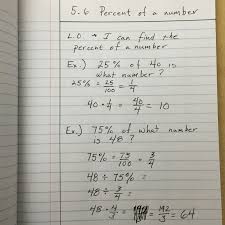 5.6 Percent of a number
L.O → I can find the
percent of a number
Ex.) 25% of 40 is
what number?
25% = 25/100 = 1/4
40 · 1/4 = 40/4 = 10
Ex.) 75% of what number
is 48?
75% = 75/100 = 3/4
48 ÷ 75% =
48 ÷ 3/4 =
48 · 4/3 = = 192/3 = 64